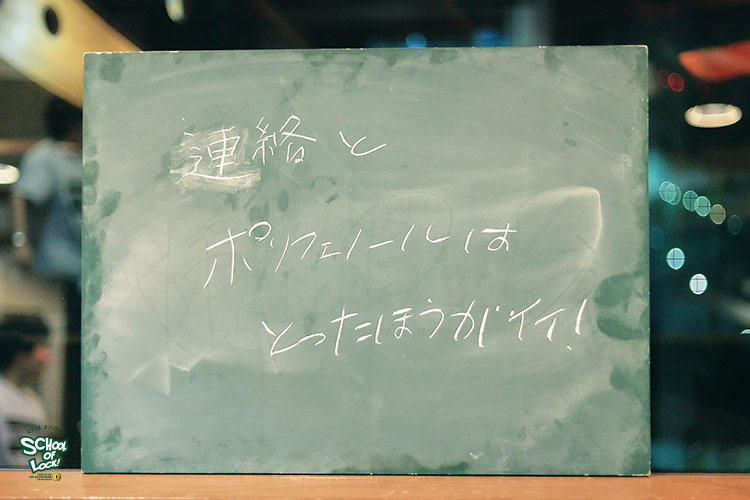 連絡と
ポリフェノールは
とったほうがイイ!
SCHOOL
OF
LOCK!